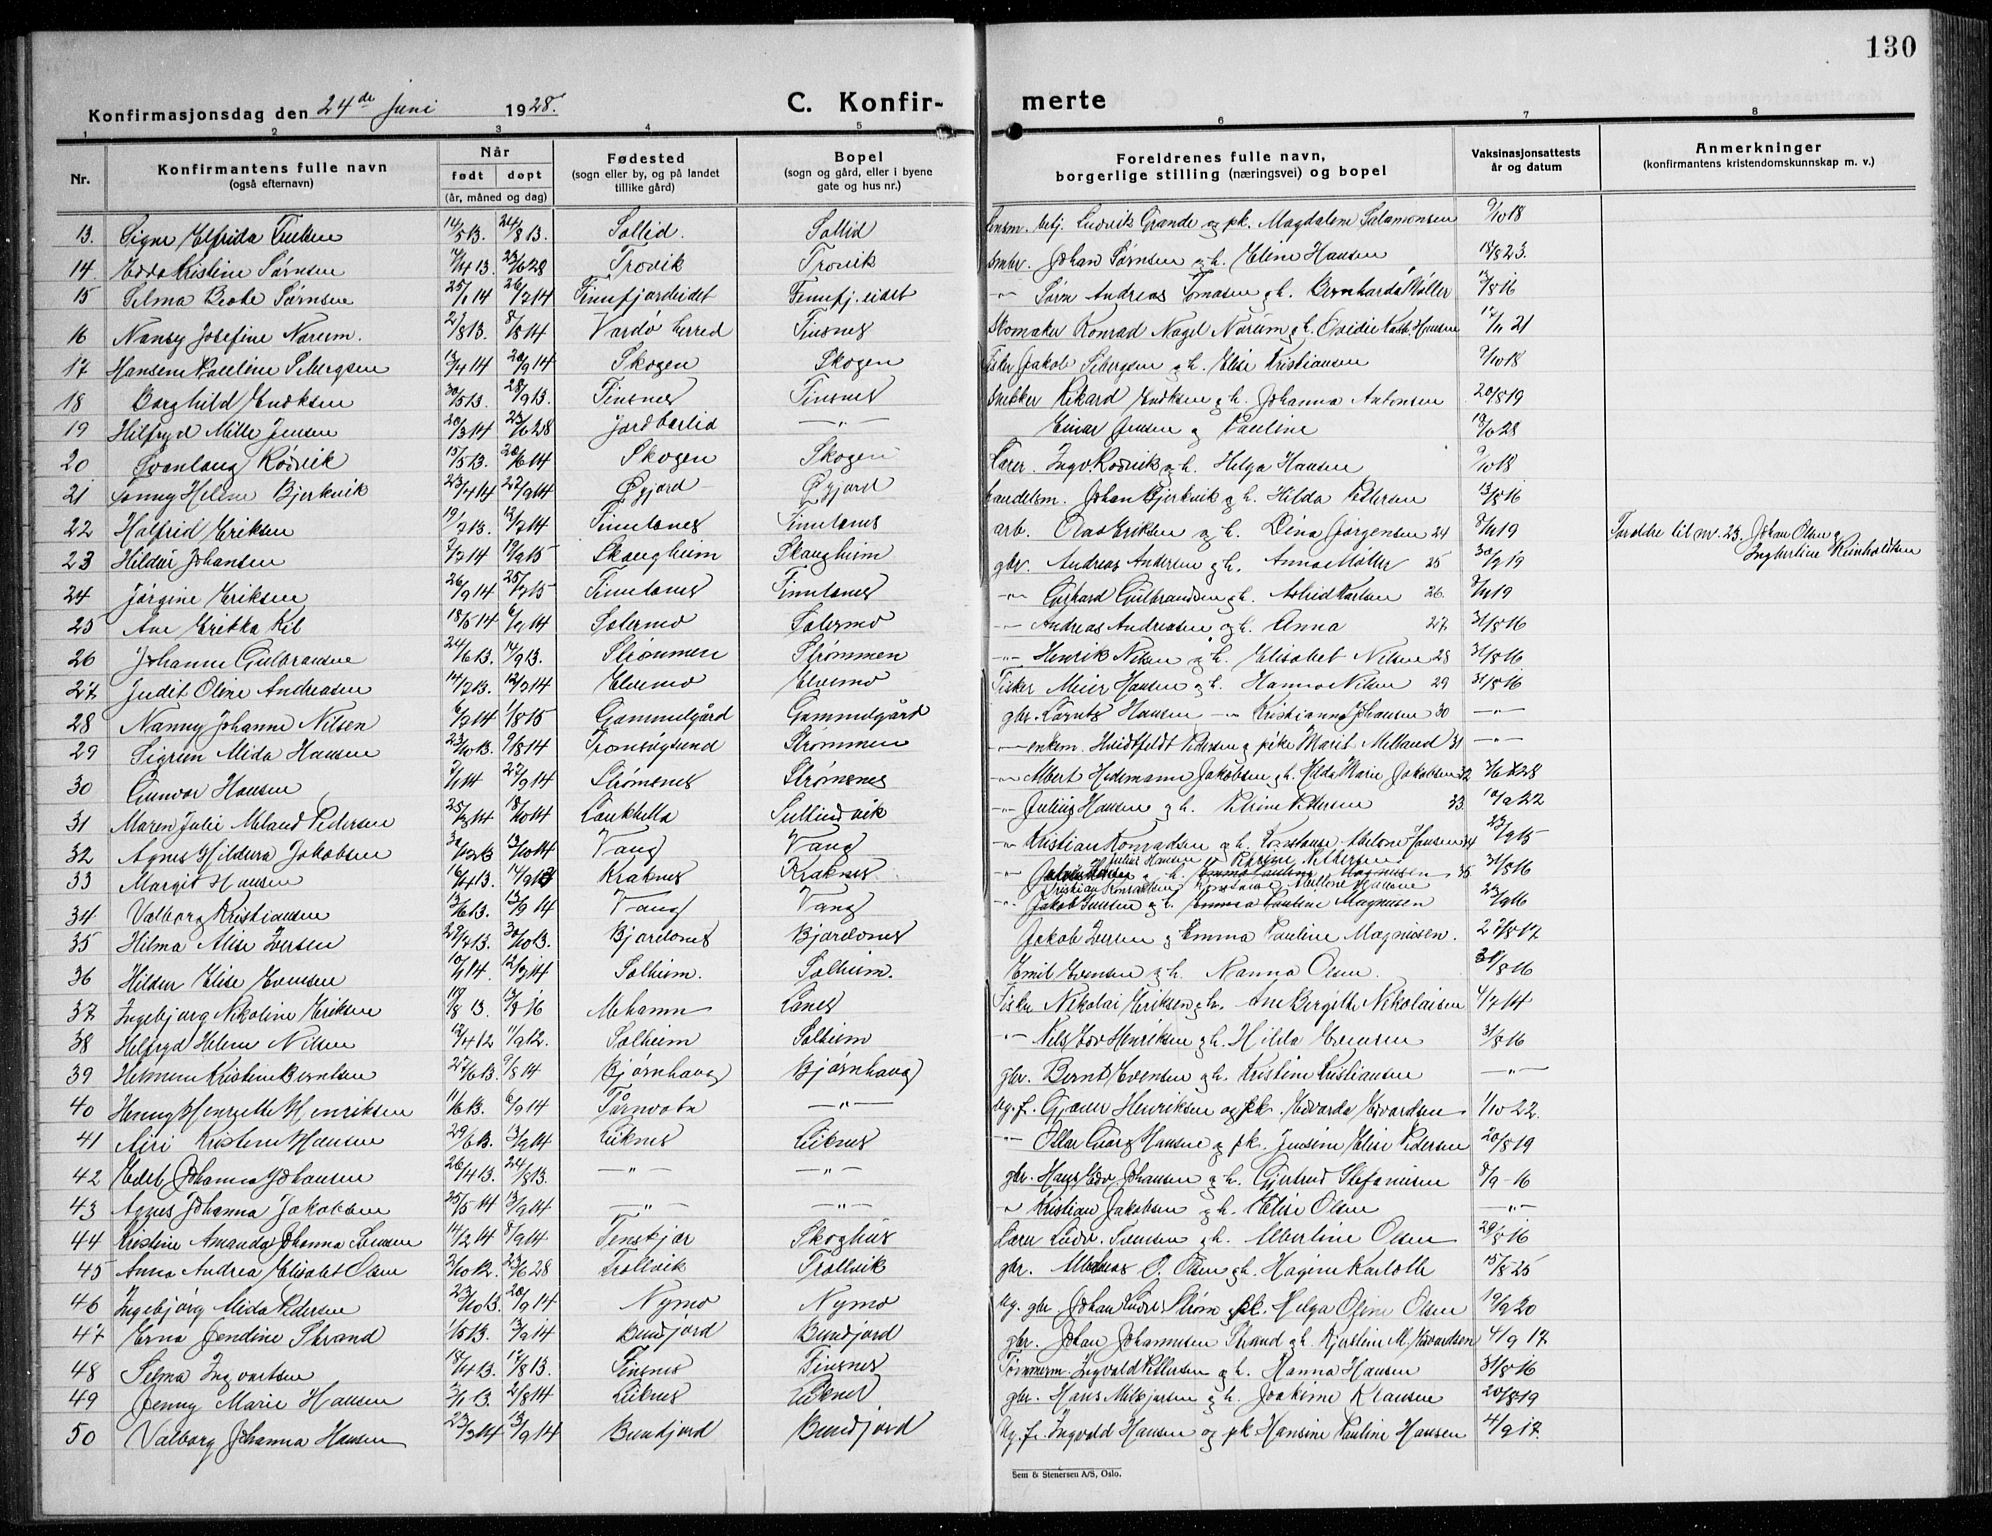 130
Konfirmasjonsdag den 24de Juni 1928.
C. Konfir-
merte
1 2 3 4 5 6 7 8
Nr.
Konfirmantens fulle navn
(også efternavn)
Når
født døpt
(år, måned og dag)
Fødested
(sogn eller by, og på landet
tillike gård)
Bopel
(sogn og gård, eller i byene
gate og hus nr.)
Foreldrenes fulle navn,
borgerlige stilling (næringsvei) og bopel
Vaksinasjonsattests
år og datum
Anmerkninger
(konfirmantens kristendomskunnskap m. v.)
13. Signe Elfrida 14/5 13. 24/8 13. Sollid. Sollid Ludvik Grande og pk. Magdalene Salamonsen 9/10 18
14. Edda Kristine Sørnsen 23/6 28 Trovik Trovik Johan Sørnsen og h. Eline Hansen 18/8 23.
15 Selma Beate Sørnsen 25/1 14 26/7 14 Finnfjordeidet Finnfj.eidet -"- Sørn Andreas Tomasen og h. Bernharda Møller 13/8 16
16 Nansy Josefine Narum. 27/8 13. 8/8 14 Vardø herred Finsnes Skomaker Konrad Nagel Narum og h. Ovidie Kath. Hansen 17/11 21
17 Hansene Pauline Sebergsen 13/4 14 20/9 14 Skogen Skogen Fisker Jakob Sebergsen og h. Elise Kristiansen 9/10 18
18 Borghild Eriksen 30/5 13. 28/9 13. Finsnes Finsnes Snekker Rikard Eriksen og h. Johanna Antonsen 20/8 19
19 Hilfryd Mille Jensen 20/3 14 23/6 28 Jordbærlid -"- Einar Jensen og Pauline 18/6 28
20 Svanlaug Rødvik 15/5 13. 20/6 14 Skogen Skogen Lærer. Ingv. Rødvik og h. Helga Hansen 9/10 18
21 Sonny Helene Bjerkvik 23/4 14 27/9 14 Øyjord Øyjord handelsm. Johan Bjerkvik og h. Hilda Petersen 13/8 16
22 Halfrid Eriksen 19/9 13. 12/7 14 Finnlanes Finnlanes arb. Olaf Eriksen og h. Dina Jørgensen 24 8/11 19 Foreldre til nr. 23. Johan Olsen og
23 Hildur Johansen 7/7 14 19/9 15 Skaugheim Skaugheim gbr. Andreas Andersen og h. Anna Møller 25 30/9 19 Ingbertine Reinholdtsen
24 Jørgine Eriksen 26/9 14 25/7 15 Finnlanes Finnlanes -"- Gerhard Gulbrandsen og h. Astrid Karlsen 26. 8/11 19
25 Ane Erikka Kil 18/5 14 6/9 14 Solermo Solermo -"- Andreas Andreasen og h. Anna 27 31/8 16
26 Johanne Gulbransen 24/6 13. 14/9 13. Strømmen Strømmen -"- Henrik Nilsen og h. Elisabet Nilsen 28 31/8 16
27 Judit Oline Andreasen 14/7 13. 12/7 14 Elvemo Elvemo Fisker Meier Hansen og h. Hanna Nilsen 29 31/8 16
28 Nanny Johanne Nilsen 6/9 14 1/8 15 Gammelgård Gammelgård gbr. Lornts Hansen -"- Kristianna Johansen 30 -"-
29 Sigrun Alida Hansen 23/10 13. 9/8 14 Tromsøysund Strømmen -"- enkem. Hvidtfeldt Pedersen og pike Marit Melland 31 -"-
30 Gunvor Hansen 7/1 14 27/9 14 Strømsnes Strømsnes -"- Albert Hedemann Jakobsen og h. Hilda Marie Jakobsen 32
31 Maren Julie Meland Pedersen 25/3 14 18/10 14 Laukhella Sultindvik -"- Julius Hansen og h. Petrine Pedersen 33. 10/9 22
32 Agnes Hildura Jakobsen 13/10 14 Vang Vang -"- Kristian Konradsen og h. Konstanse Abelone Hansen 34 23/9 15
Julius Hansen og Petrine Pettersen
33 Margit Hansen 16/4 13. 14/9 13 Kraknes Kraknes -"- Julius Hansen og h. Emma Pauline Magnussen 35 31/8 16
Kristian Konradsen Konstanse Abellone Hansen
34 Valborg Kristiansen 13/6 13. 13/9 14 Vang Vang -"- Jakob Iversen og h. Emma Pauline Magnusen 23/9 16
35 Hilma Alise Iversen 29/7 13. 30/10 13. Bjordones Bjordones Jakob Iversen og Emma Pauline Magnusen. 27/8 17
36 Hildur Elise Evensen 10/1 14. 12/7 14 Solheim. Solheim. Emil Evensen og h. Nanna Olsen. 31/8 16
37 Ingebjørg Nikoline Eriksen 19/8 13. 13/8 16 Mehamn Lånes Fisker Nikolai Eriksen og h. Ane Bergitte Nikolaisen 4/7 14
38 Helfryd Helene Nilsen 19/4 12 11/9 12. Solheim Solheim -"- Nils Edv Henriksen og h. Hilda Evensen 31/8 16
39 Helmine Kristine Berntsen 27/6 13. 9/8 14 Bjørnhaug Bjørnhaug gbr. Bernt Evensen og h. Kristine Kristiansen -"-
40 Henny Henriette Henriksen 11/6 13. 6/9 14 Tårnvatn -"- Ug. f. Gjøem Henriksen og pk. Edvarda Edvardsen 1/10 22.
41 Siri Kristine Hansen 29/6 13. 13/9 14 Leiknes Leiknes -"- Ottar Georg Hansen og pk. Jensine Elise Pedersen 20/8 19
42 Edel Johanna Johansen 26/4 13. 24/8 13. -"- -"- gbr. Hans Edv Johansen og h. Gjertrud Stefanusen 8/9 -16
43 Agnes Johanna Jakobsen 25/5 14 13/9 14 -"- -"- -"- Kristian Jakobsen og h. Elise Olsen -"-
44 Kristine Amanda Johanna Svensen 14/2 14 8/9 14 Finskjær Skoghus Lærer Ludv. Svensen og h. Albertine Olsen 29/8 16
45 Anna Andrea Elisabet Olsen 2/10 12. 23/6 28 Trollvik Trollvik gbr. Mathias O. Olsen og h. Hagine Karlotte 15/8 25
46 Ingebjørg Alida Pedersen 23/10 13. 20/9 14 Nymo Nymo Ug. gbr. Johan Ludv. Strøm og pk. Helga Oline Olsen 19/9 20
47 Erna Jendine Strand 1/5 13. 13/9 14 Bundjord Bundjord gbr. Johan Johannesen Strand og h. Kjerstine M. Edvardsen 4/9 17
48 Selma Ingvartsen 18/4 13. 17/8 13. Finsnes Finsnes Tømmerm. Ingvald Pettersen og h. Hanna Hansen 31/8 16
49 Jenny Marie Hansen 3/1 13. 2/8 14 Leiknes Leiknes gbr. Hans Mikjarsen og h. Joakime Klausen 20/8 19
50 Valborg Johanna Hansen 23/3 14 13/9 14 Bundjord Bundjord Ug. f. Ingvald Hansen og pk Hansine Pauline Hansen 4/9 17.
Sem & Stenersen A/S, Oslo.